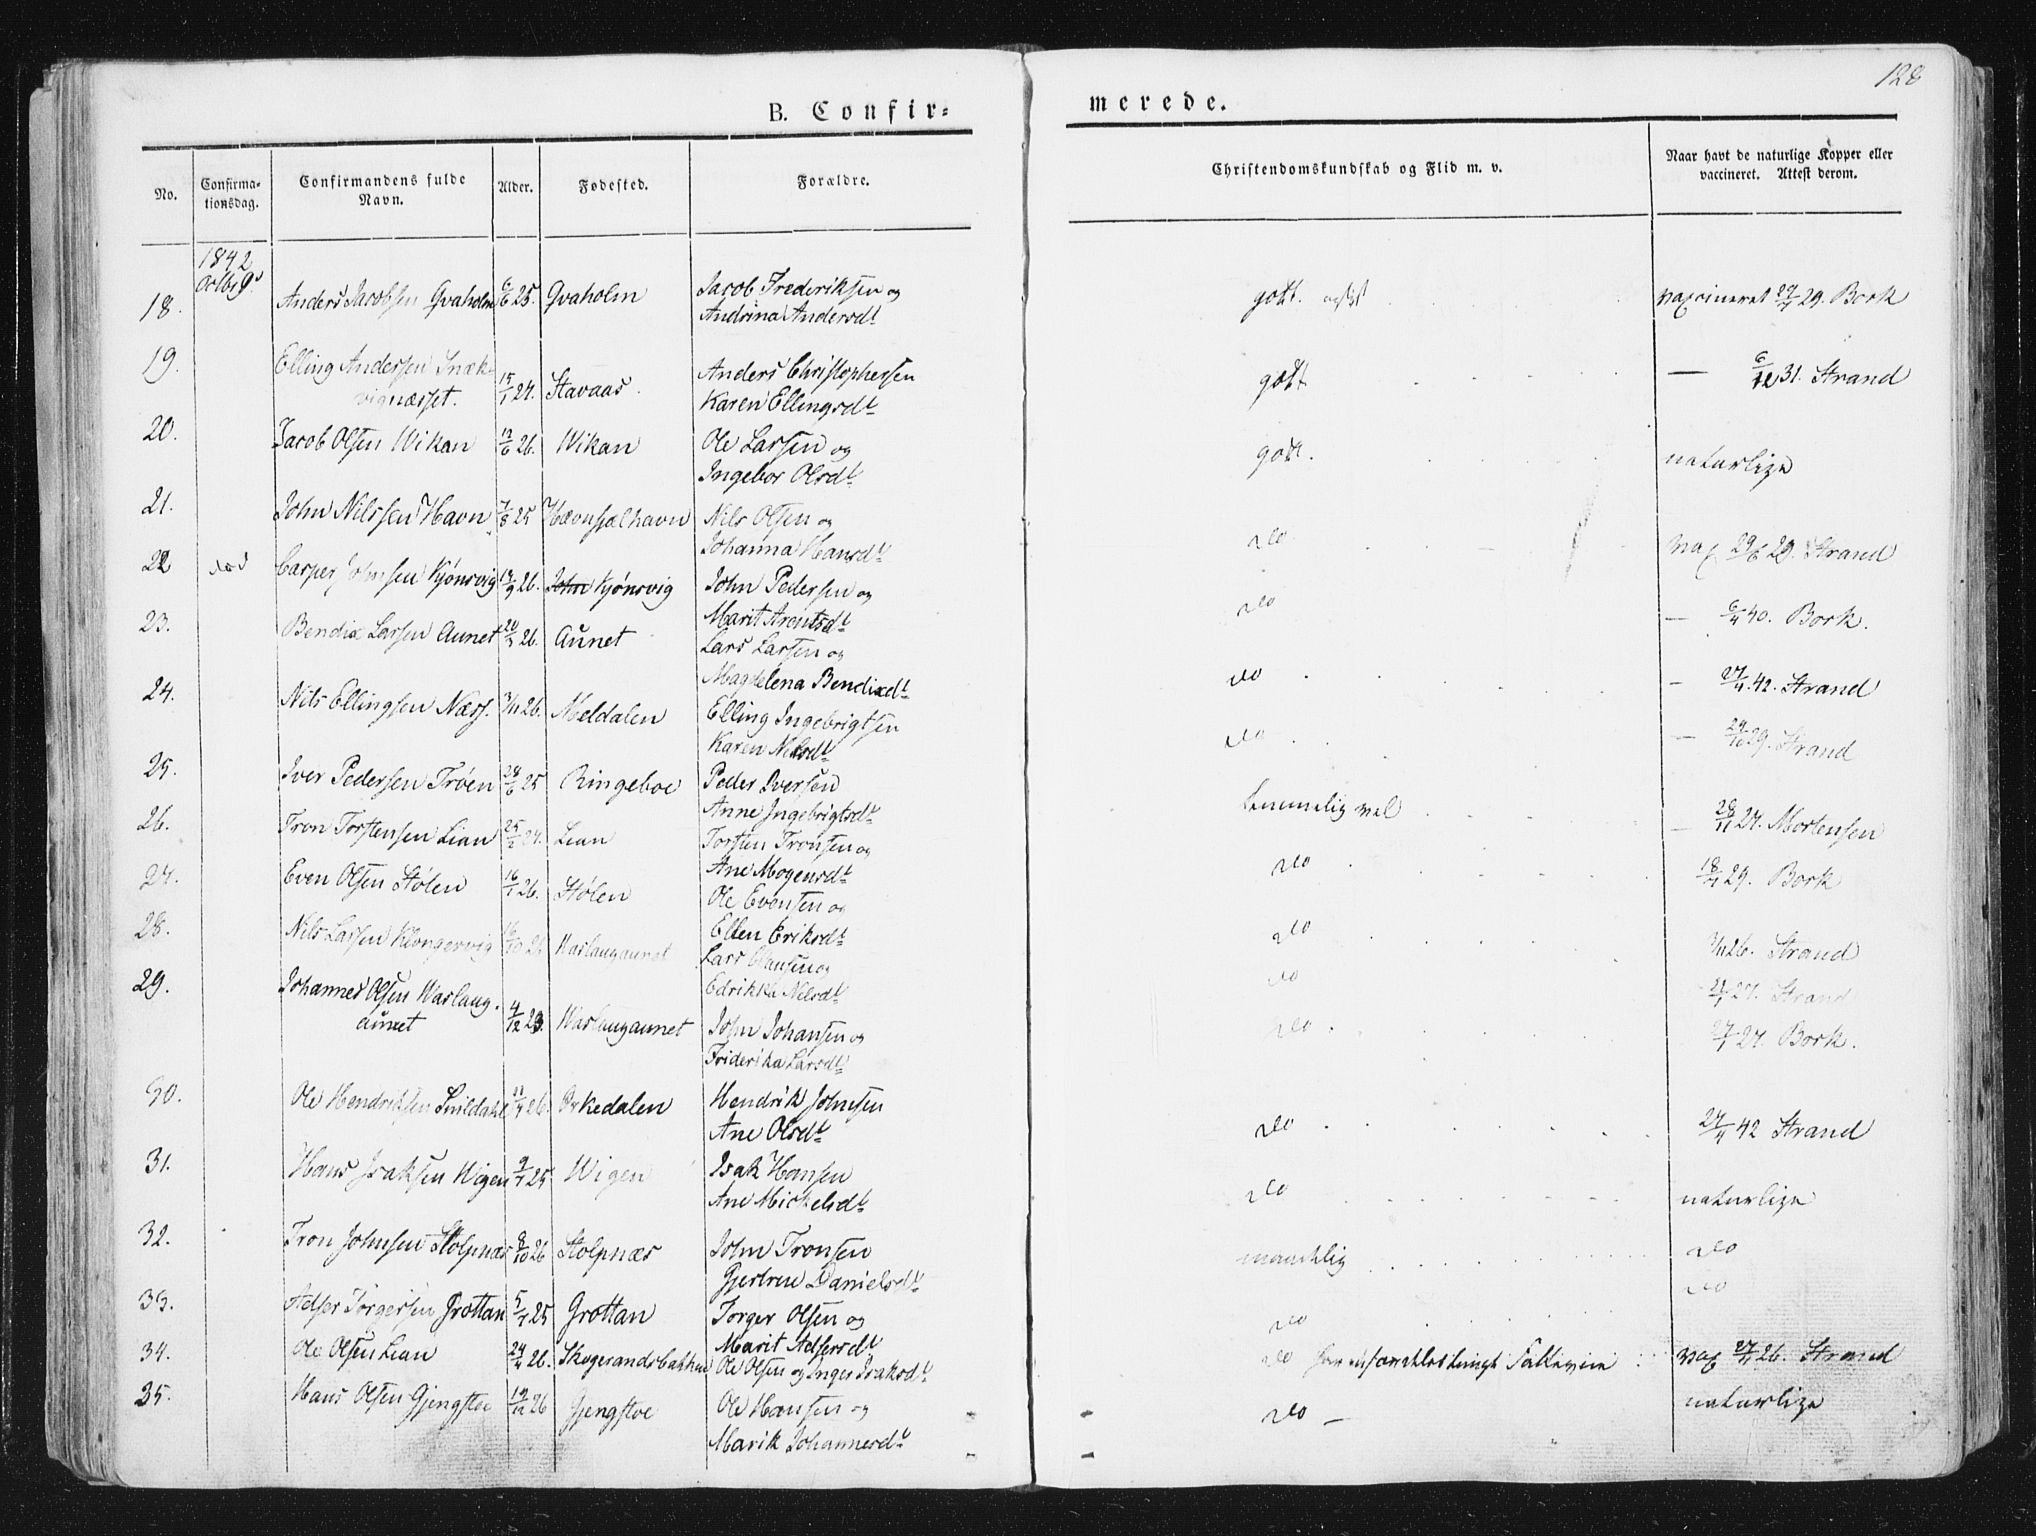 128
B. Confir- merede.
No. Confirma-tionsdag. Confirmandens fulde Navn. Alder. Fødested. Forældre. Christendomskundskab og Flid m. v. Naar havt de naturlige Kopper eller vaccineret. Attest derom.
1842
Octbr 9d
18. Anders Jacobsen Qvaholm 6/6 25. Qvaholm Jacob Frederiksen og godt. vaxcineret 29/7 29. Bork
Andrina Andersdt
19. Elling Andersen Snæk- 15/1 24. Stavaas. Anders Christophersen godt — 6/12 31. Strand
vignæsset. Karen Ellingsdt
20. Jacob Olsen Wikan 12/6 26. Wikan Ole Larsen og godt. naturlige
Ingebor Olsdt
21. John Nilssen Havn 7/8 25 Hævnskjælhavn Nils Olsen og do vax 29/6 29. Strand
Johanna Hansdt
22 død Casper Johnsen Kjønsvig 13/9 26. Kjønsvig John Pedersen og do — 6/4 40. Bork.
Marit Arentsdt
23. Bendix Larsen Aunet 20/2 26. Aunet Lars Larsen og do — 27/4 42. Strand
Magdelena Bendixdt
24. Nils Ellingsen Næss. 3/11 26. Meldalen Elling Ingebrigtsen do — 29. Strand
Karen Nilsdt
25. Iver Pedersen Trøen 28/6 25 Ringeboe Peder Iversen temmelig vel — 28/11 27. Mortensen
Anne Ingebrigtsdt
26. Tron Torstensen Lian 25/2 24. Lian Torsten Tronsen og do 18/7 29. Bork
Ane Mogensdt
27. Even Olsen Stølen 16/1 26. Stølen Ole Evensen og do 3/11 26. Strand
Ellen Eriksdt
28. Nils Larsen Klongervig 16/10 Warlaugaunet Lars Clausen og do 27. Strand
Edrikka Nilsdt
29. Johannes Olsen Warlaug- 4/12 23. Warlaugaunet John Johansen og do 27/7 27. Bork.
aunet Friderika Larsdt
30. Ole Hendriksen Snildahl 11/4 26. Orkedalen Hendrik Johnsen do 27/4 42 Strand
Ane Olsdt
31. Hans Isaksen Wigen 9/7 25 Wigen Isak Hansen do naturlige
Ane Mickelsdt
32. Tron Johnsen Stolpnæs 8/10 26 Stolpnæs John Tronsen maadelig do
Gjertrue Danielsdt
33. Adser Torgersen Grottan 5/7 25 Grottan Torger Olsen og do do
Marit Adsersdt
34. Ole Olsen Lian 24/4 26. Skogerandsbakken Ole Olsen og Inger Isaksdt do vax 27/11 26. Strand
35. Hans Olsen Gjengstoe 19/12 26 Gjengstoe Ole Hansen og do — naturlige
Marik Johannesdt